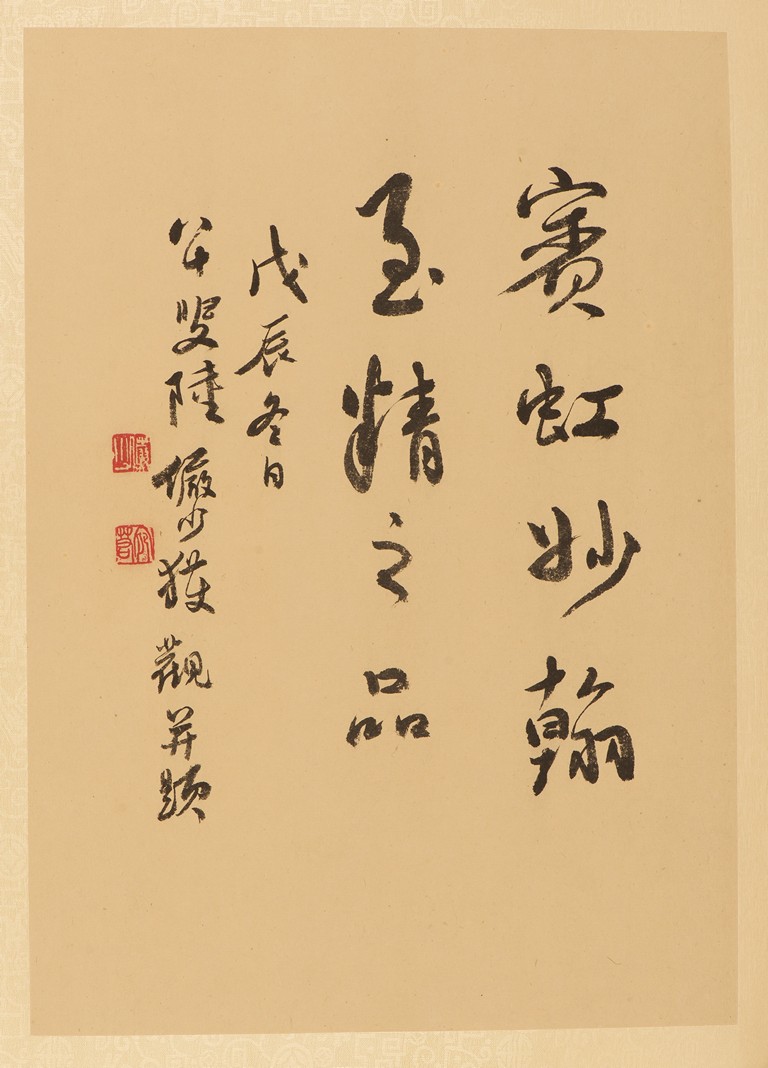 賓虹妙翰
至精之品
戊辰冬日
八十叟陸儼少獲觀并題